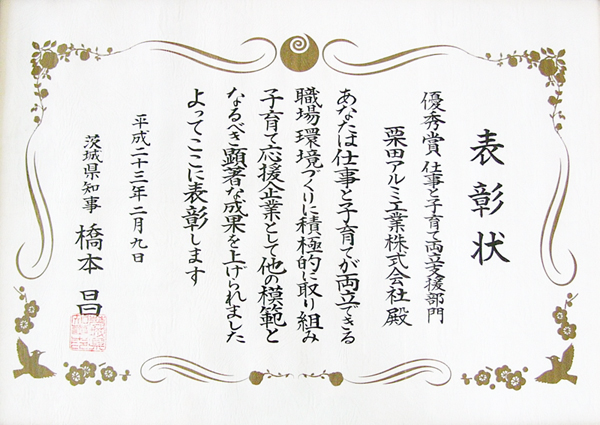 表彰状
優秀賞 仕事と子育て両立支援部門
栗田アルミ工業株式会社 殿
あなたは仕事と子育てが両立できる
職場環境づくりに積極的に取り組み
子育て応援企業として他の模範と
なるべき顕著な成果を上げられました
よってここに表彰します
平成二十三年二月九日
茨城県知事 橋本昌